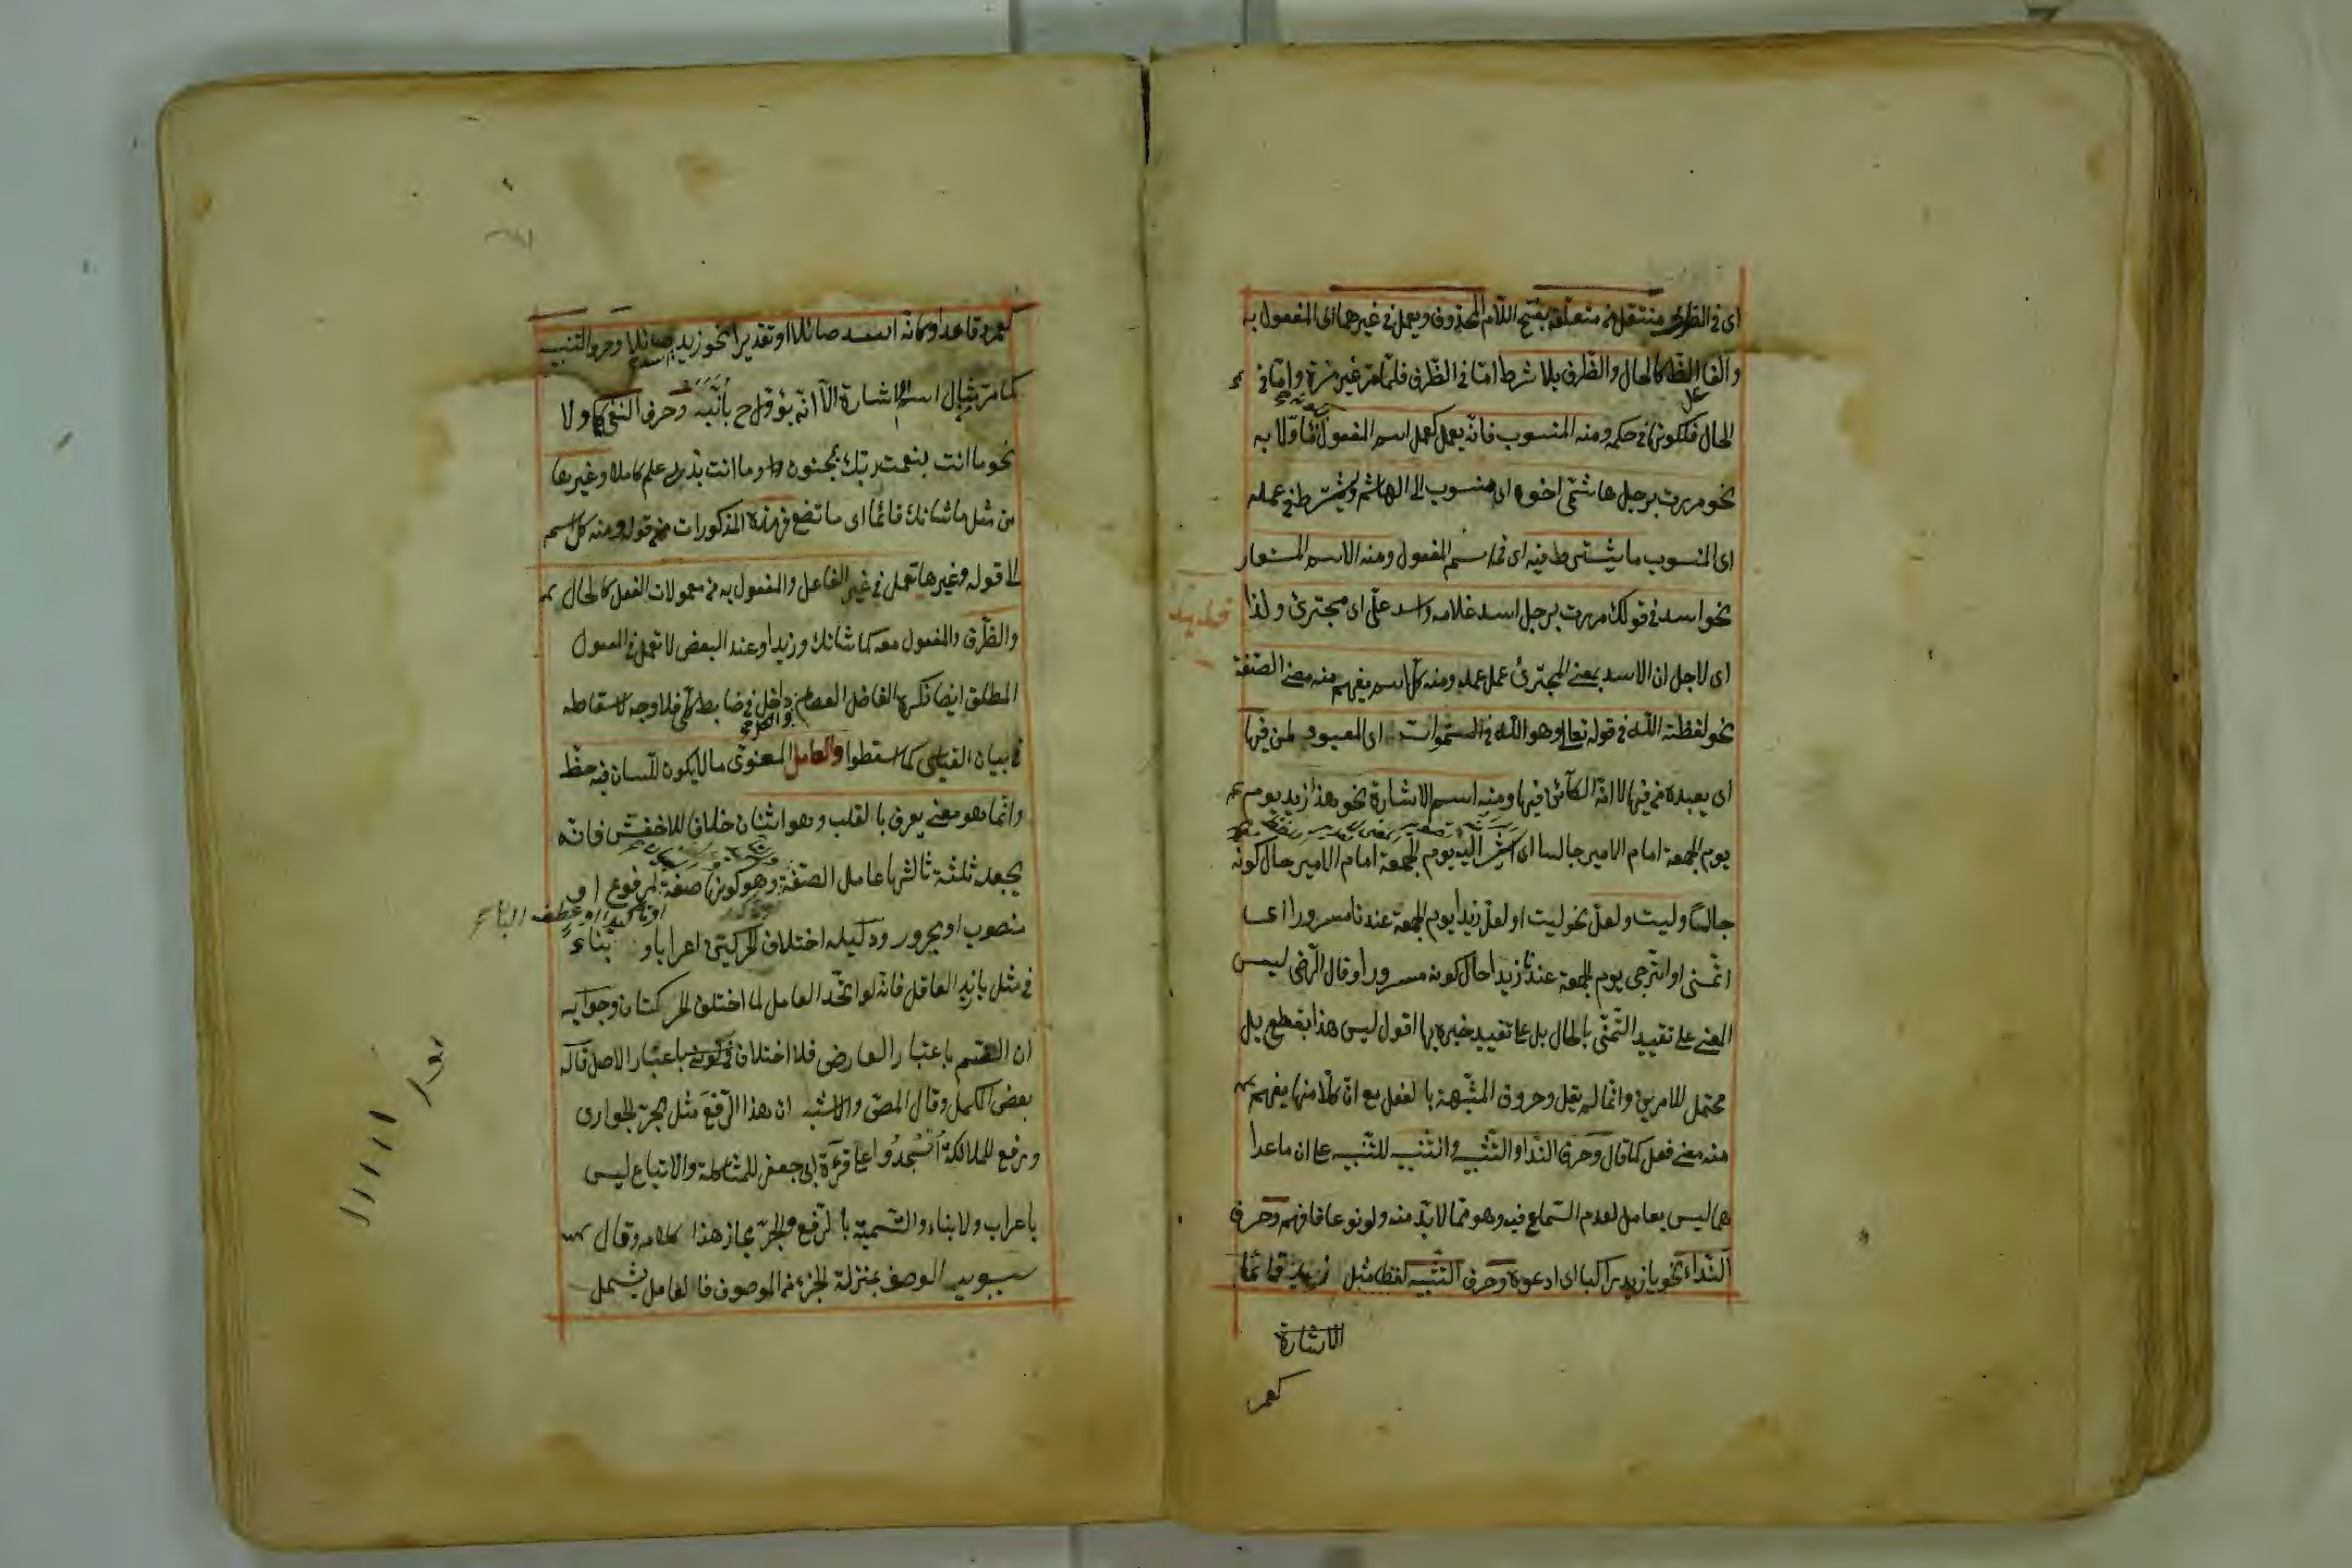 اى فى الظرف منتقل من متعلقه بفتح اللام المحذوف ويعمل فى غيرهما اى المفعول به
والفاعل كالحال والظرف بلا شرط امّا فى الظرف فلما مر غير مرة وامّا فى
الحال فلكونها فى حكمه ومنه المنسوب فانه يعمل كعمل اسم المفعول
نحو مررت برجل هاشمّى اخوه اى منسوب الى الهاشم ويشترط فى عمله
اى المنسوب ما يشترط فيه اى فى اسم المفعول ومنه الاسم المستعار
نحو اسد فى قولك مررت برجل اسد غلامه واسد علىّ اى مجترئ ولذا
اى لاجل ان الاسد بمعنى المجترئ عمل عمله ومنه كل اسم يفهم منه معنى الصّفة
نحو لفظة اللّه فى قوله تعالى وهو اللّه فى السّموات اى المعبود لمن فيها
اى يعبده من فيها لا انّه الكائن فيها ومنه اسم الاشارة نحو هذا زيد يوم
يوم الجمعة امام الامير جالسا اى اشير اليه يوم الجمعة امام الامير حال كونه
جالسًا وليت ولعلّ نحو ليت او لعلّ زيدا يوم الجمعة عندنا مسرورا اى
اتمنّى او اترجى يوم الجمعة عندنا زيدا حال كونه مسرورا وقال الرّضى ليس
المعنى على تقييد التّمنّى بالحال بل على تقييد خبره بها اقول ليس هذا بقطع بل
محتمل للامرين وانّما لم يقل وحروف المشبّهة بالفعل مع انّ كلّا منها يفهم
منه معنى فعل كما قال وحرف النّدا والتّنبيه وانتنبيه للتّنبيه على ان ما عدا
ها ليس بعامل لعدم السّماع فيه وهو ممّا لا بدّ منه ولو نوعا فافهم وحرف
النّداء نحو يا زيد راكبا اى ادعوه وحرف التّنبيه لفظا مثل زيد قائمًا
الاشارة
كعمر
كعمرو قاعدا وكانّه اسد صائلا او تقديرا نحو زيد اسد صائلا وحرف التنبيه
كما مرّ مثال اسم الاشارة الّا انّه يؤوّل ح بانبّه وحرف النّفى كما ولا
نحو ما انت بنعمت ربّك بمجنون وما انت بذى علم كاملا وغيرها
من مثل ما شانك قائمًا اى ما تصنع فهذه المذكورات من قوله ومنه كل اسم
الى قوله وغيرها تعمل فى غير الفاعل والمفعول به من معمولات الفعل كالحال
والظّرف والمفعول معه كما شانك وزيدا وعند البعض لا تعمل فى المفعول
المطلق ايضا ذكره الفاضل العصام داخل فى ضابط كلّى فلا وجه لاسقاطه
فى بيان القياسى كما اسقطوا والعامل المعنوىّ ما لا يكون للّسان فيه حظّ
وانّما هو معنى يعرف بالقلب وهو اثنان خلافا للاخفش فانّه
يجعله ثلثة ثالثها عامل الصّفة وهو كونها صفة لمرفوع او
او تاكيد او عطف البيا
منصوب او مجرور ودليله اختلاف الحركتين اعرابا وبناء
فى مثل يا زيد العاقل فانّه لو اتّحد العامل لما اختلف الحركتان وجوابه
ان الضّم باعتبار العارض فلا اختلاف باعتبار الاصل قاله
بعض الكمل وقال المصّ والاشبه ان هذا الرّفع مثل جرّ الجوارى
ورفع للملائكة اُسْجُدُوا على قرءة ابى جعفر للمشاكلة والاتباع ليس
باعراب ولا بناء والتّسمية بالرّفع والجرّ مجاز هذا كلامه وقال
سيبويه الوصف بمنزلة الجزء من الموصوف فالعامل يشمل